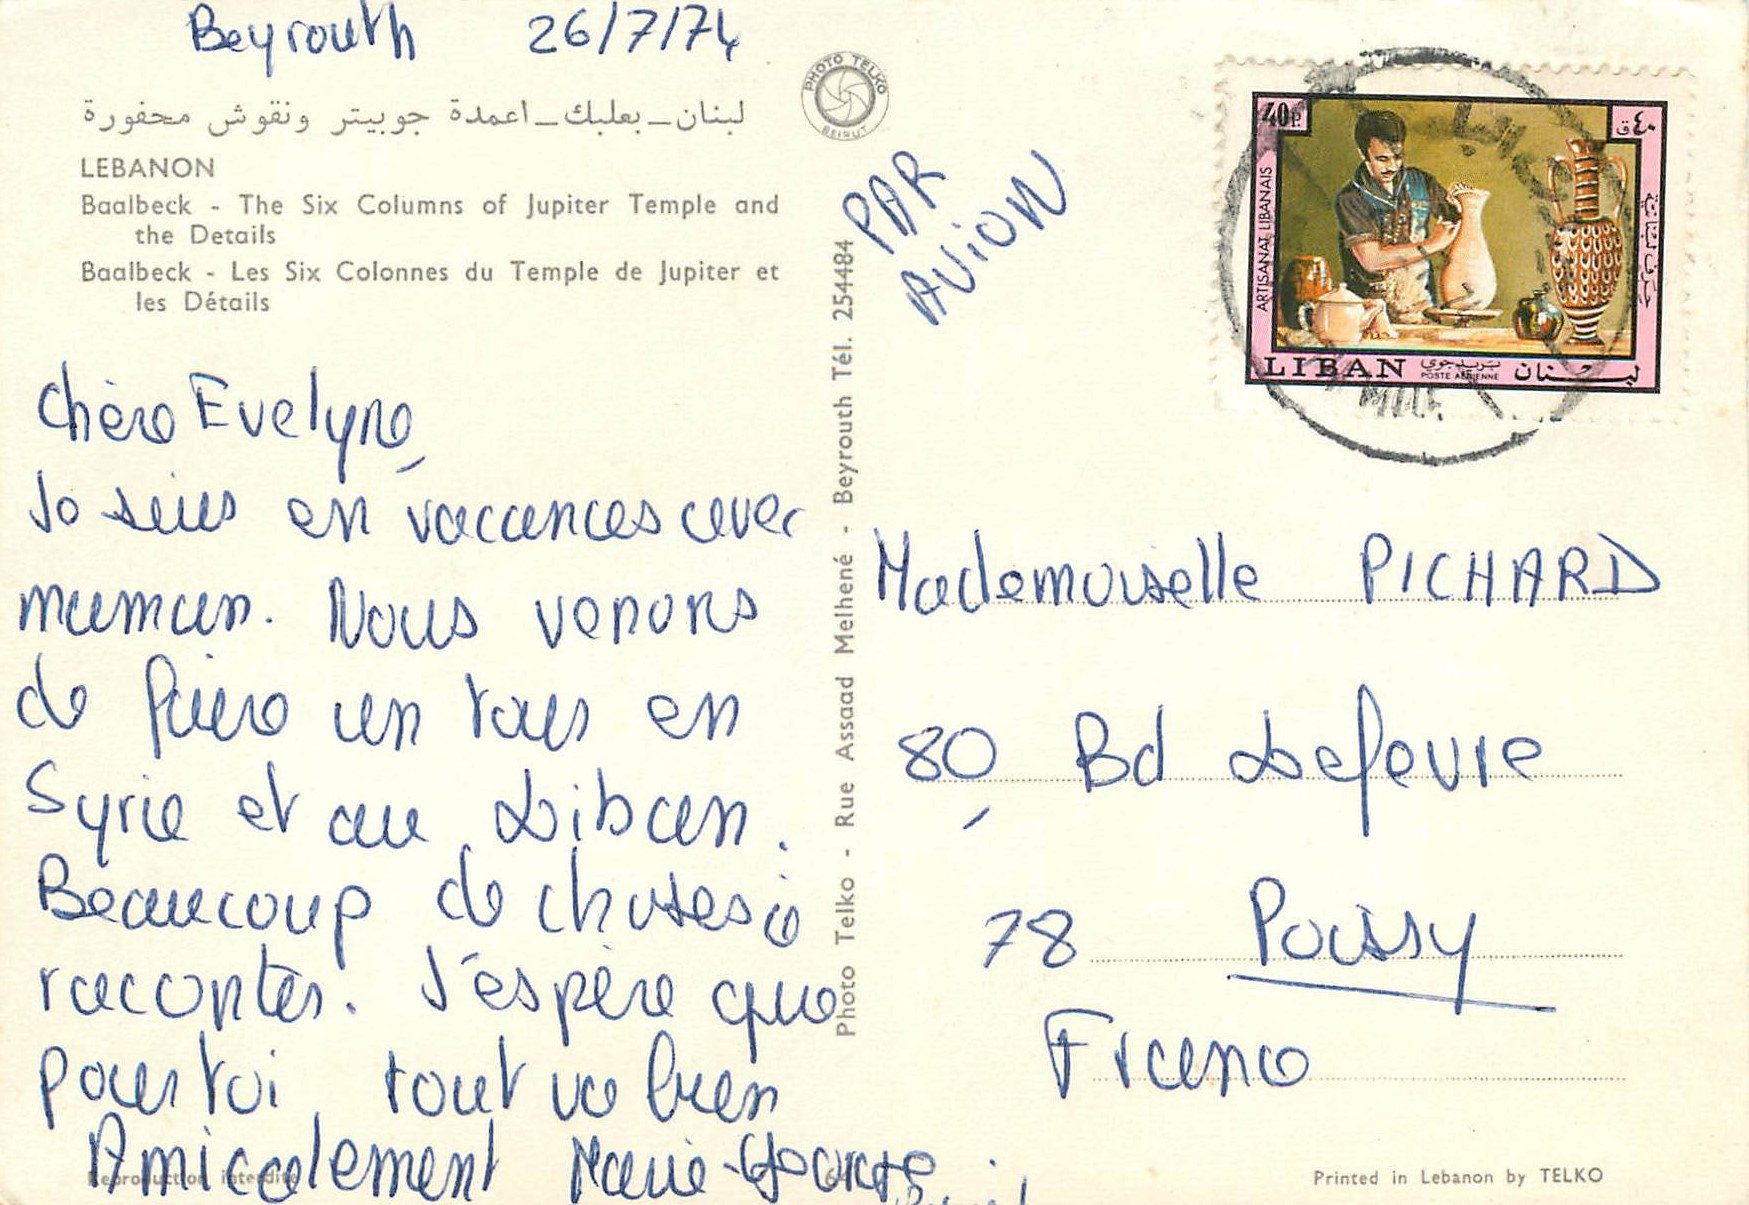 Beyrouth 26/7/74
لبنان_بعلبك_اعمدة جوبيتر ونقوش محفورة
LEBANON
Baalbeck - The Six Columns of Jupiter Temple and
the Details
Baalbeck - Les Six Colonnes du Temple de Jupiter et
les Détails
Chère Evelyne,
Je suis en vacances avec
maman. Nous venons
de faire un tour en
Syrie et au Liban.
Beaucoup de choses à
raconter. J'espère que
pour toi tout va bien
Amicalement Marie-George
Reproduction interdite
Photo Telko - Rue Assaad Melhené - Beyrouth Tél. 254484
PHOTO TELKO
BEIRUT
PAR
AVION
40P.
٤٠ق
ARTISANAT LIBANAIS
حرف لبنانية
LIBAN بريد جوي لبنان
POSTE AERIENNE
Mademoiselle PICHARD
80, Bd Lefevre
78 Poissy
France
Printed in Lebanon by TELKO